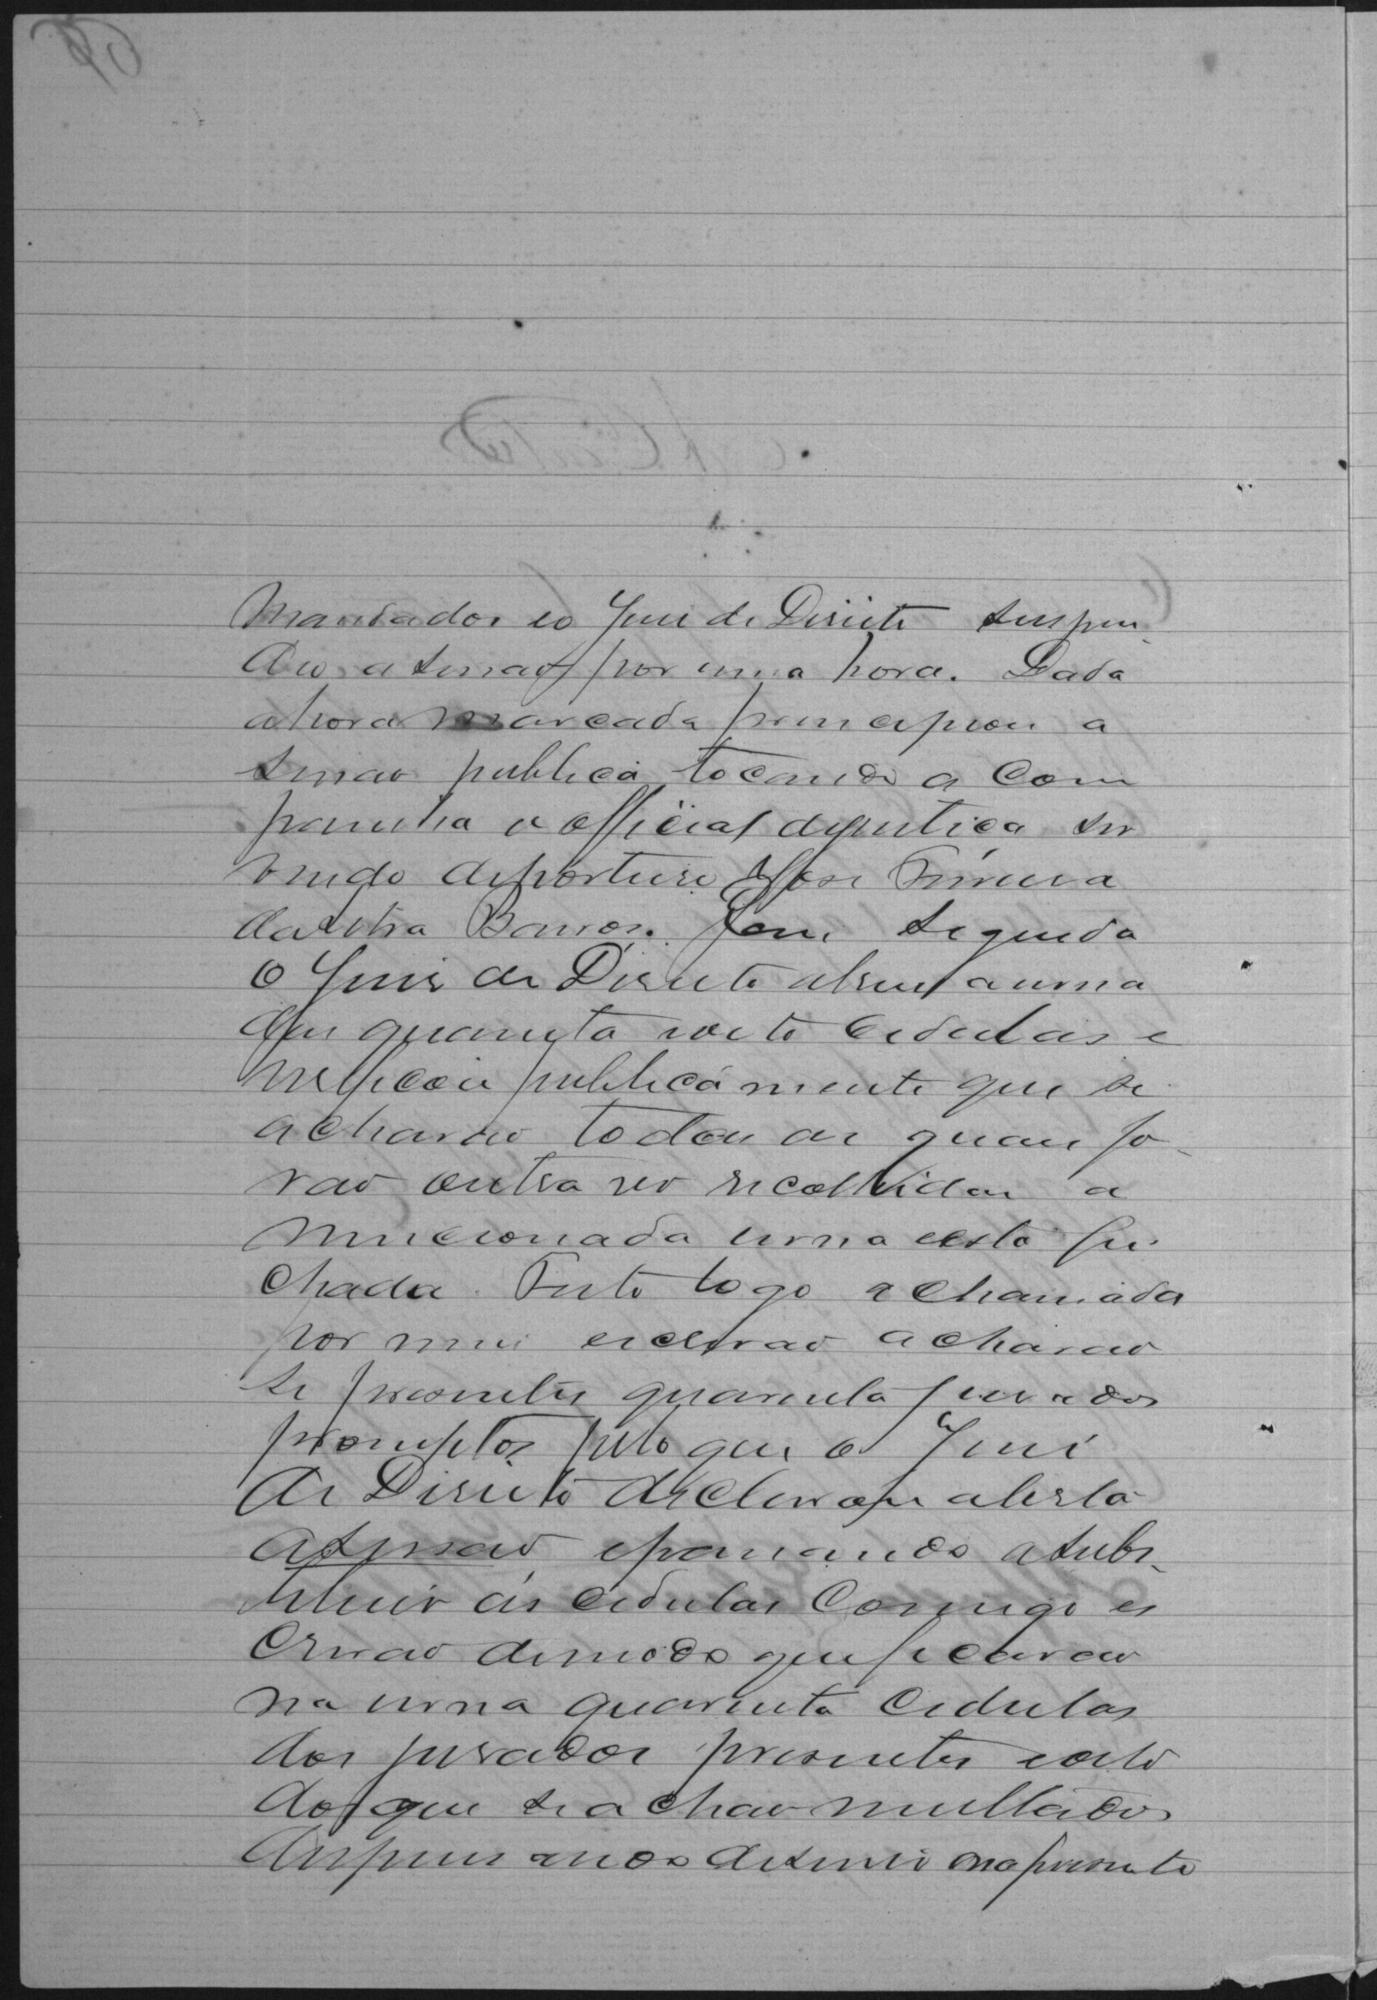 mandados eo Juis de Direito suspen-
deo a sessão por uma hora. Dada
ahora marcada principiou a
sessão publica tocando a Cam
painha o official dejustiça ser
vindo deporteiro José Ferreira
daSilva Barros. Jem seguida
o Juis de Direito abrio aurna
das quarenta eoito Cedulas e
verificou publicamente que se
acharão todas as quais fo-
rão outra ves recolhidas a
mencionada urna eesta fei
chada. Feito logo achamada
por mim escrivão acharão
se presentes quarenta jurados
promptos pelo que o Juis
de Direito declarou aberta
asessão epassando asubs-
tituir as cedulas Comigo es
crivão demodo queficarão
na urna quarenta Cedulas
dos jurados presentes eoito
dos que se achão multados
dispensados deservir napresente